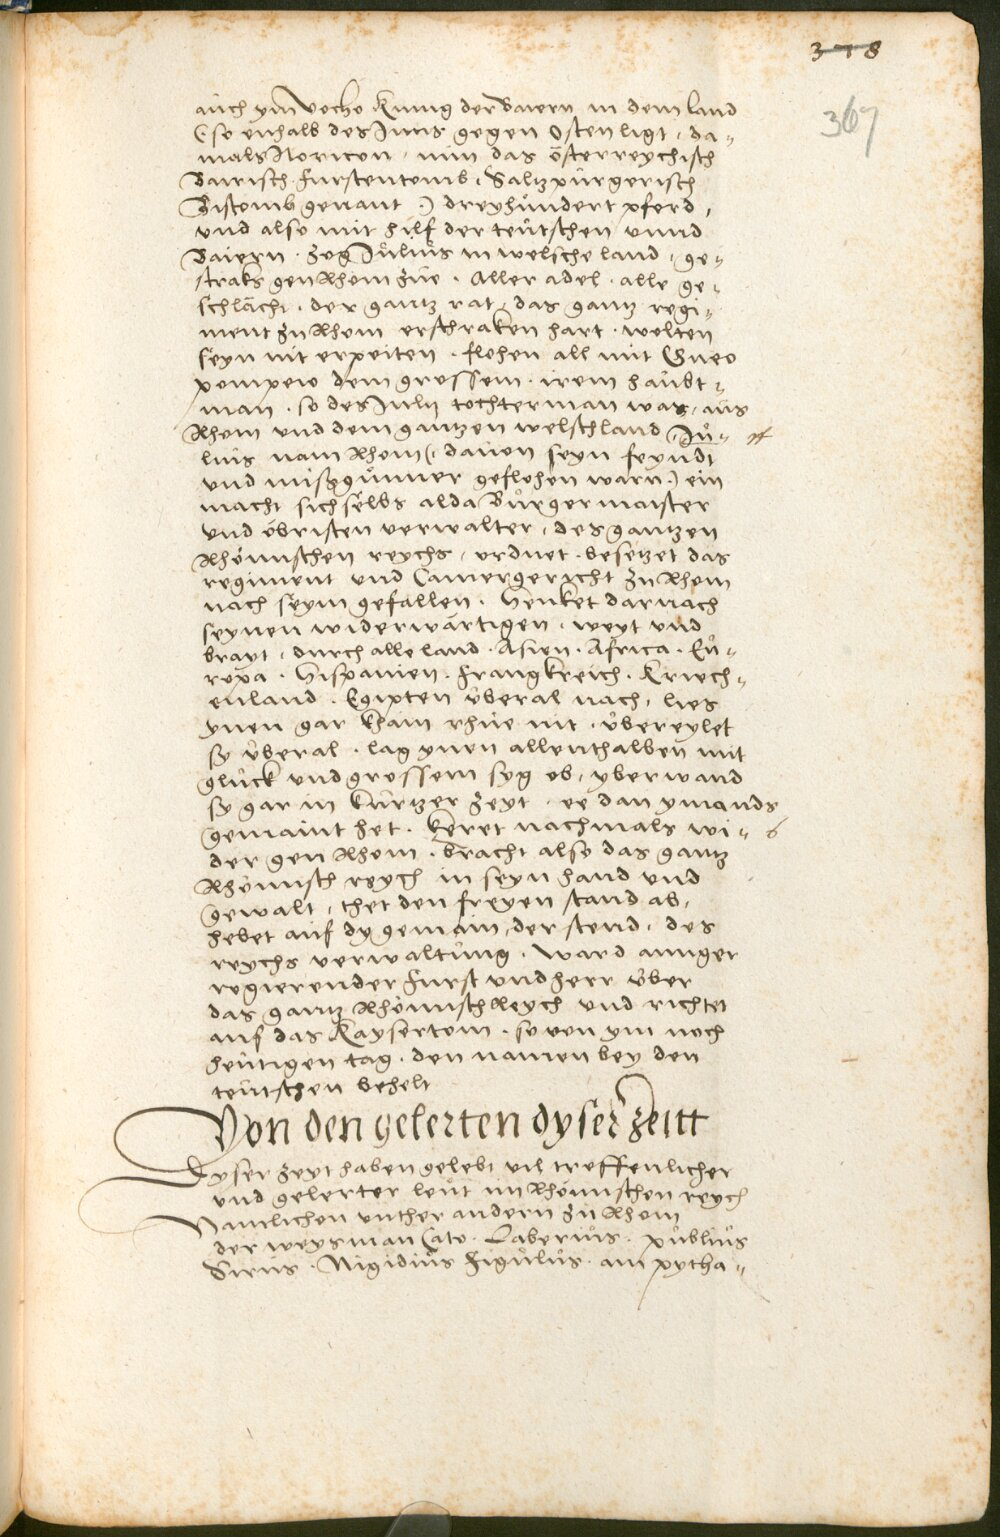 378
367
auch ym Vocho Kunig der Baiern in dem land
(: so enhalb des Inns gegen Osten ligt, da=
mals Noricon, nun das österreychisch
Bairisch furstentomb, Saltzpürgerisch
Bistomb genant :) dreyhündert pferd,
und also mit hilf der teütschen unnd
Baiern. Zog Julius in welsche land, ge=
straks gen Rhom zue. Aller adel. alle ge=
schlächt. der gantz rat, das gantz regi=
ment zu Rhom erschraken hart. wolten
seyn nit erpeiten. flohen all mit Gneo
pompeio dem grossem. irem haübt=
man. so des Julii tochterman war, aus
Rhom und dem gantzen welschland Jü=
lius nam Rhom (: davon seyn feyndt
und missgünner geflohen warn :) ein
macht sich selbs alda Bürgermaister
und öbristen verwalter, des gantzen
Rhömischen reychs, ordnet. besetzet das
regiment und Camergericht zu Rhom
nach seym gefallen. henket darnach
seynen widerwärtigen. weyt und
brayt, durch alle land. Asien. Africa. Eü=
ropa. Hispanien. Frangkreich. Kriech=
enland. Egipten überal nach, lies
ynen gar kain rhüe nit. übereylet
sy überal. lag ynen allenthalben mit
glück und grossem syg ob, yberwand
sy gar in kürtzer zeyt. ee dan ymands
gemaint het. keret nachmals wi= 6
der gen Rhom. bracht also das gantz
Rhömisch reych in seyn hand und
gewalt, thet den freyen stand ab,
hebet auf dy gemain, der stend, des
reychs verwaltüng. Ward ainiger
regierender furst und herr über
das gantz Rhömisch Reych und richtet
auf das Kaysertom. so von ym noch
heütigen tag. den namen bey den
teütschen behelt
Von den gelerten dyser zeitt
Dyser zeyt haben gelebt vil treffenlicher
und gelerter leüt im Rhömischen reych
Namlichen unther andern zu Rhom
der weysman Cato. Laberiüs. püblius
Sirus. Nigidiüs Figülüs. ain pytha=